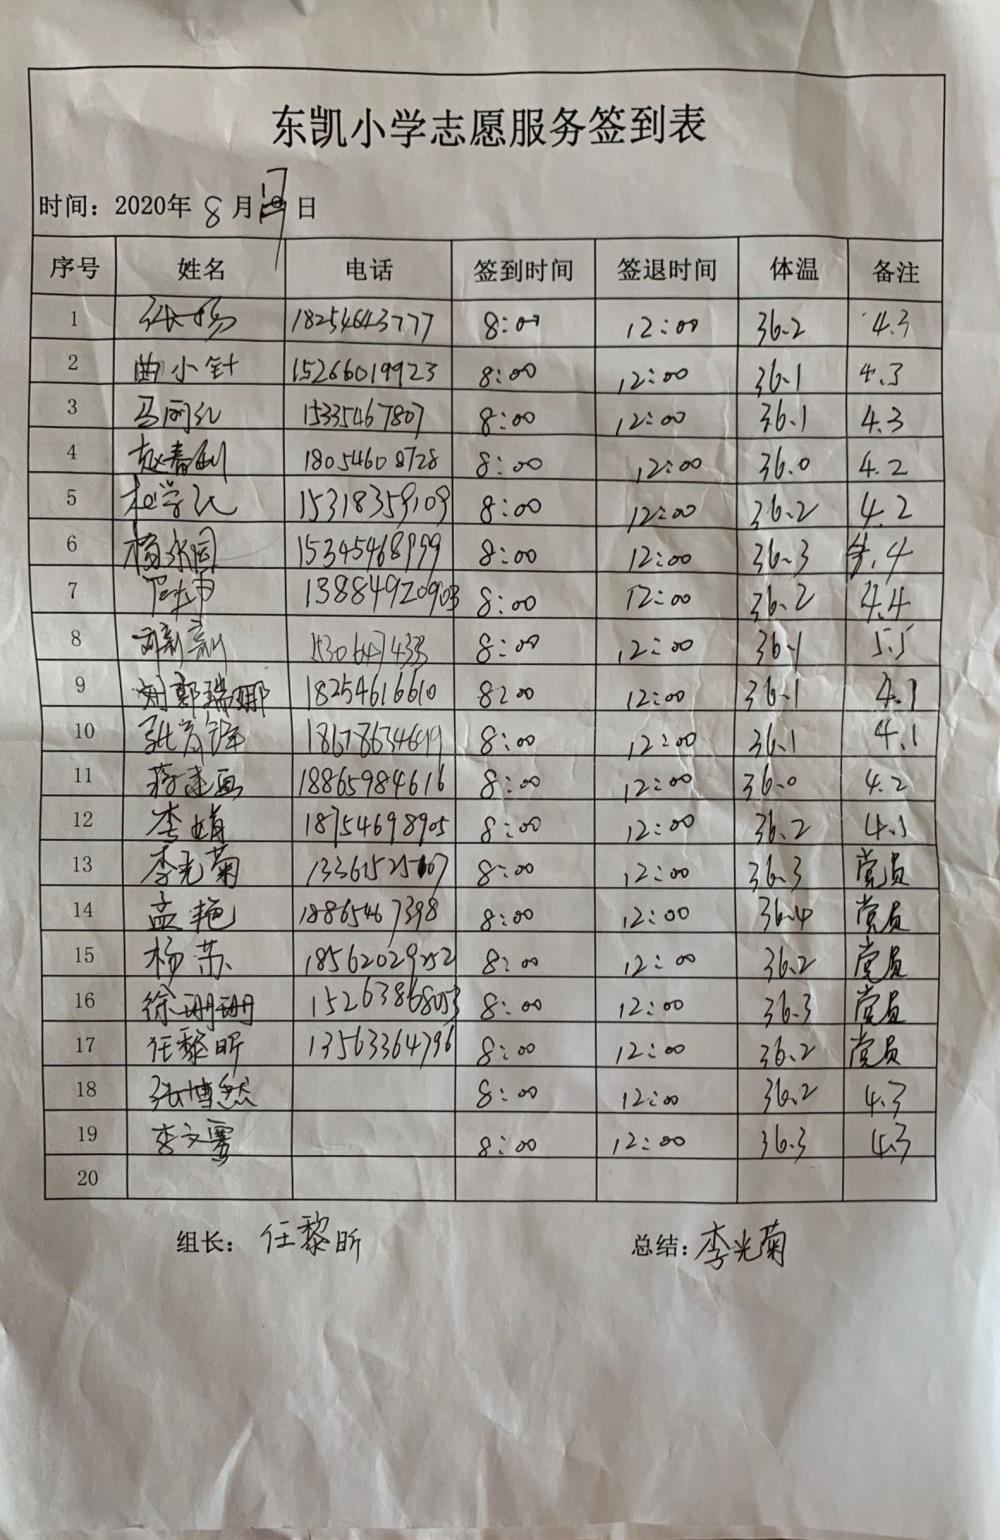 东凯小学志愿服务签到表
时间：2020年 8 月 日
序号 姓名 电话 签到时间 签退时间 体温 备注
1 张杨 18254643777 8:00 12:00 36.2 4.3
2 曲小针 15266019923 8:00 12:00 36.1 4.3
3 15335467807 8:00 12:00 36.1 4.3
4 赵春利 18054608728 8:00 12:00 36.0 4.2
5 15318359109 8:00 12:00 36.2 4.2
6 8:00 12:00 36.3 4.4
7 8:00 12:00 36.2 4.4
8 8:00 12:00 36.1 5.5
9 刘郭瑞娜 18254616610 8:00 12:00 36.1 4.1
10 8:00 12:00 36.1 4.1
11 18865984616 8:00 12:00 36.0 4.2
12 李娟 18754698905 8:00 12:00 36.2 4.1
13 李光菊 8:00 12:00 36.3 党员
14 孟艳 18865467398 8:00 12:00 36.4 党员
15 杨苏 18562029252 8:00 12:00 36.2 党员
16 徐珊珊 15263868053 8:00 12:00 36.3 党员
17 任黎昕 13563364796 8:00 12:00 36.2 党员
18 张博然 8:00 12:00 36.2 4.3
19 8:00 12:00 36.3 4.3
20
组长：任黎昕 总结：李光菊